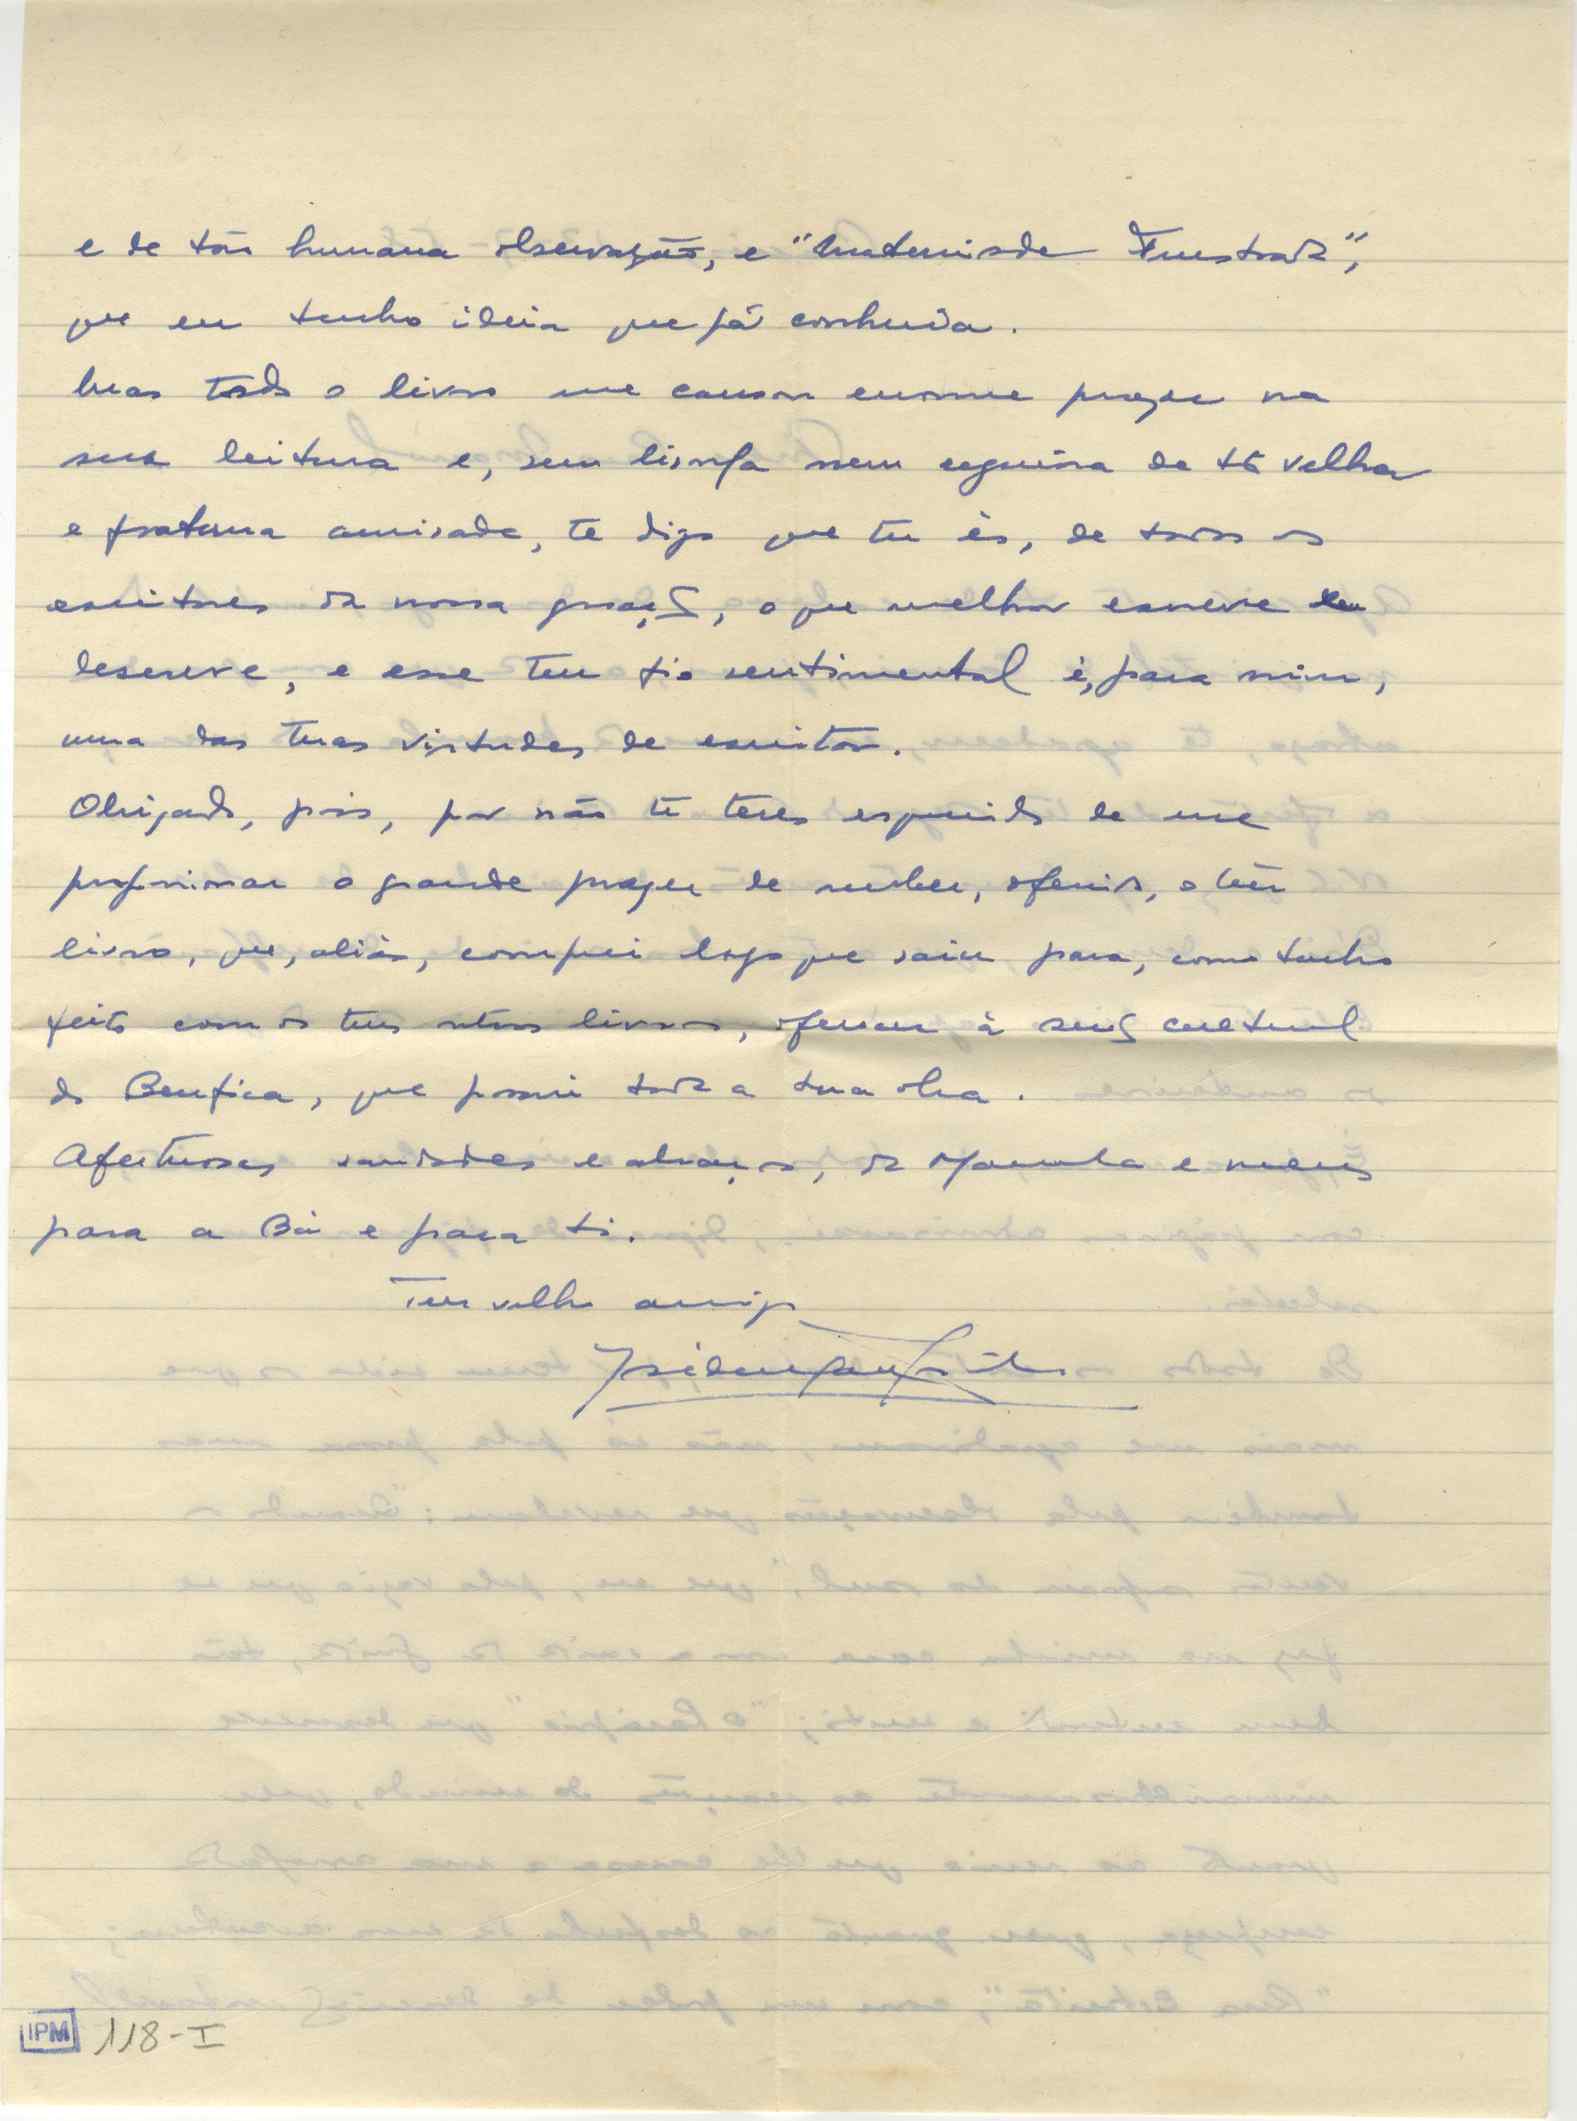 e de tão humana observação, e "Maternidade Frustrada",
que eu tenho ideia que já conhecia.
Mas todo o livro me causou enorme prazer na
sua leitura e, sem lisonja nem cegueira de tão velha
e fraterna amizade, te digo que tu és, de todos os
escritores da nossa geração, o que melhor escreve e
descreve, e esse teu fio sentimental é, para mim,
uma das tuas virtudes de escritor.
Obrigado, pois, por não te teres esquecido de me
proporcionar o grande prazer de receber, oferecido, o teu
livro, que, aliás, comprei logo que saiu para, como tenho
feito com os teus outros livros, oferecer à secção cultural
do Benfica, que possui toda a tua obra.
Afectuosas saudades e abraços, da Manuela e meus
para a Bá e para ti.
Teu velho amigo
IPM 118-I